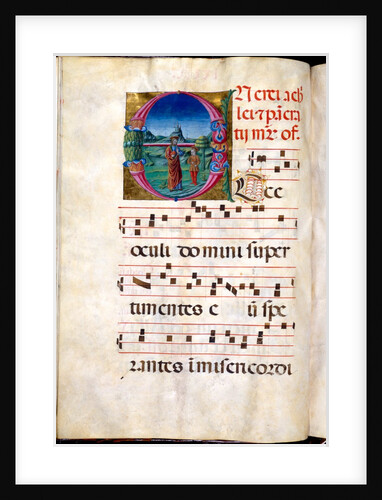 Nerei ach
lei ⁊ pācra
tij mr̄ of.
Ecce
oculi do mini super
timentes e ū spe
rantes ī misericordi